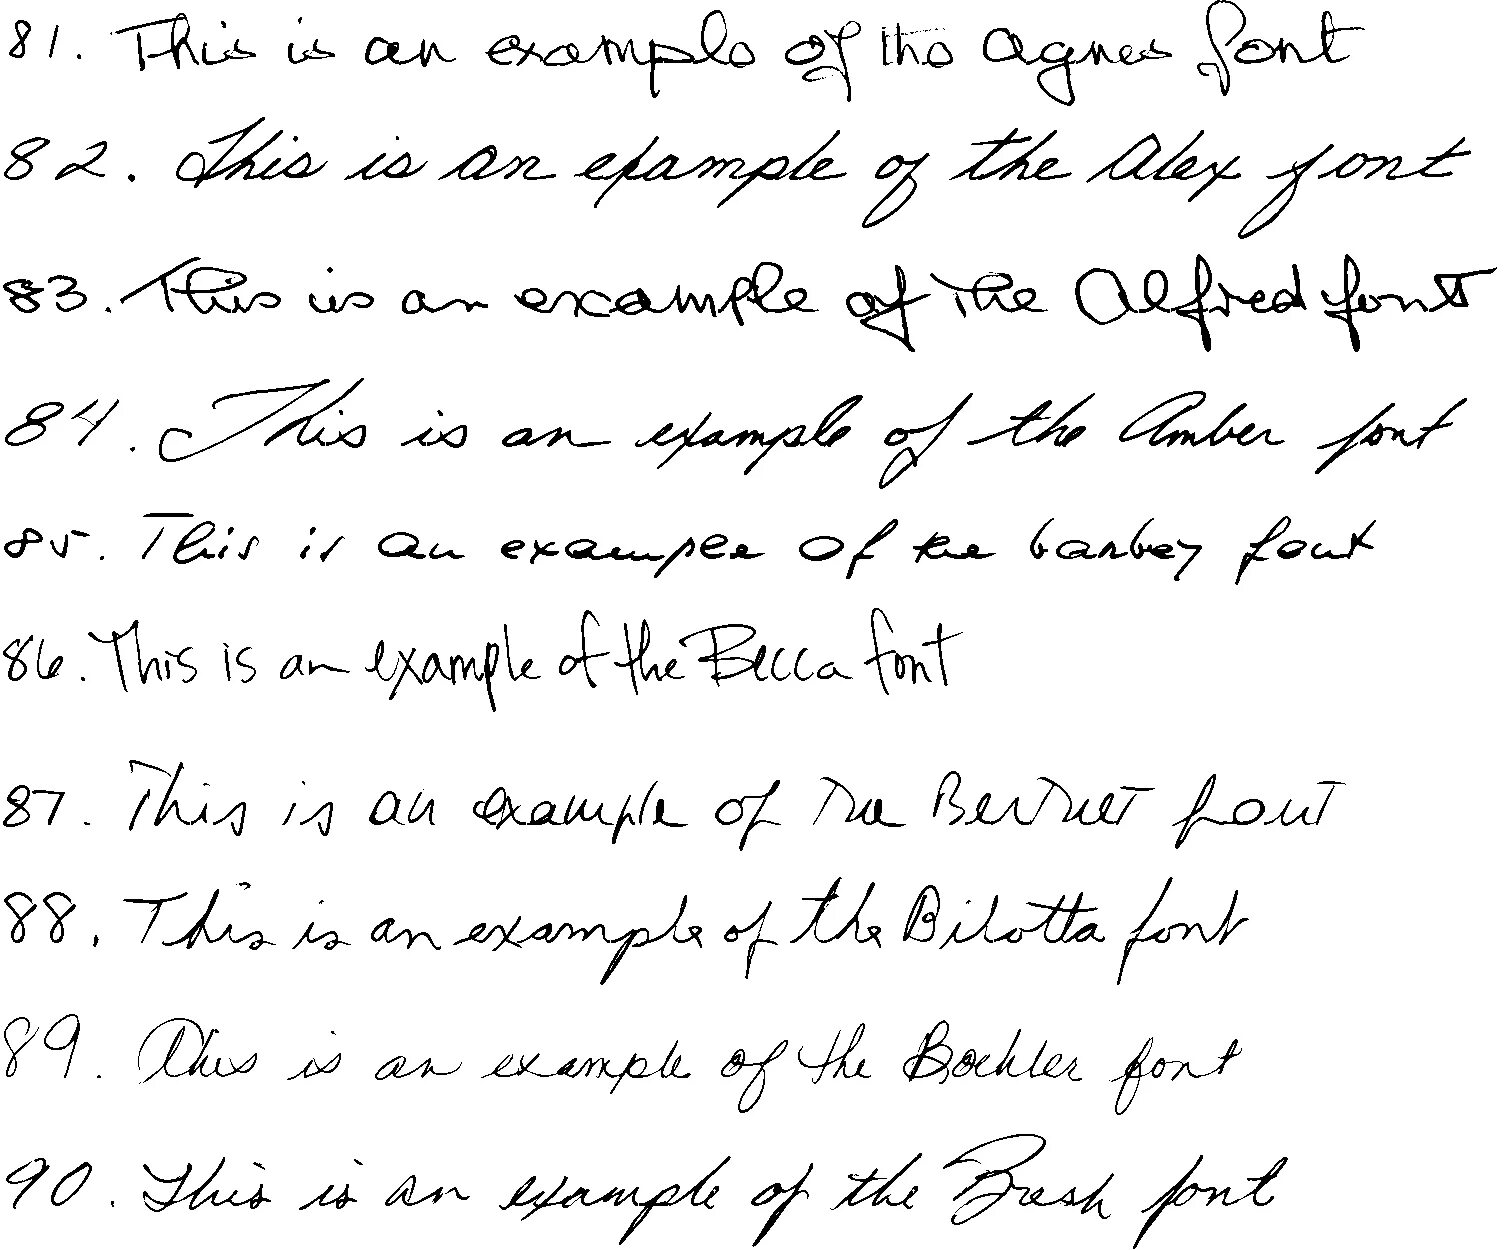 81. This is an example of the Agnes font
82. This is an example of the Alex font
83. This is an example of the Alfred font
84. This is an example of the Amber font
85. This is an example of the barbey font
86. This is an example of the Becca font
87. This is an example of the Bertret font
88. This is an example of the Bilotta font
89. This is an example of the Boehler font
90. This is an example of the font